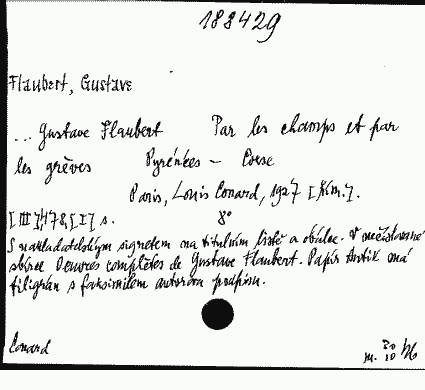 188429
Flaubert, Gustave
... Gustave Flaubert Par les champs et par
les grèves Pyrénées – Corse
Paris, Louis Conard, 1927 [Kim.].
[III], 478, [I] s. 8°
S nakladatelským signetem na titulním listě a obálce. V nečíslované
sbírce Oeuvres complètes de Gustave Flaubert. Papír Antik má
filigrán s faksimilem autorova podpisu.
Conard